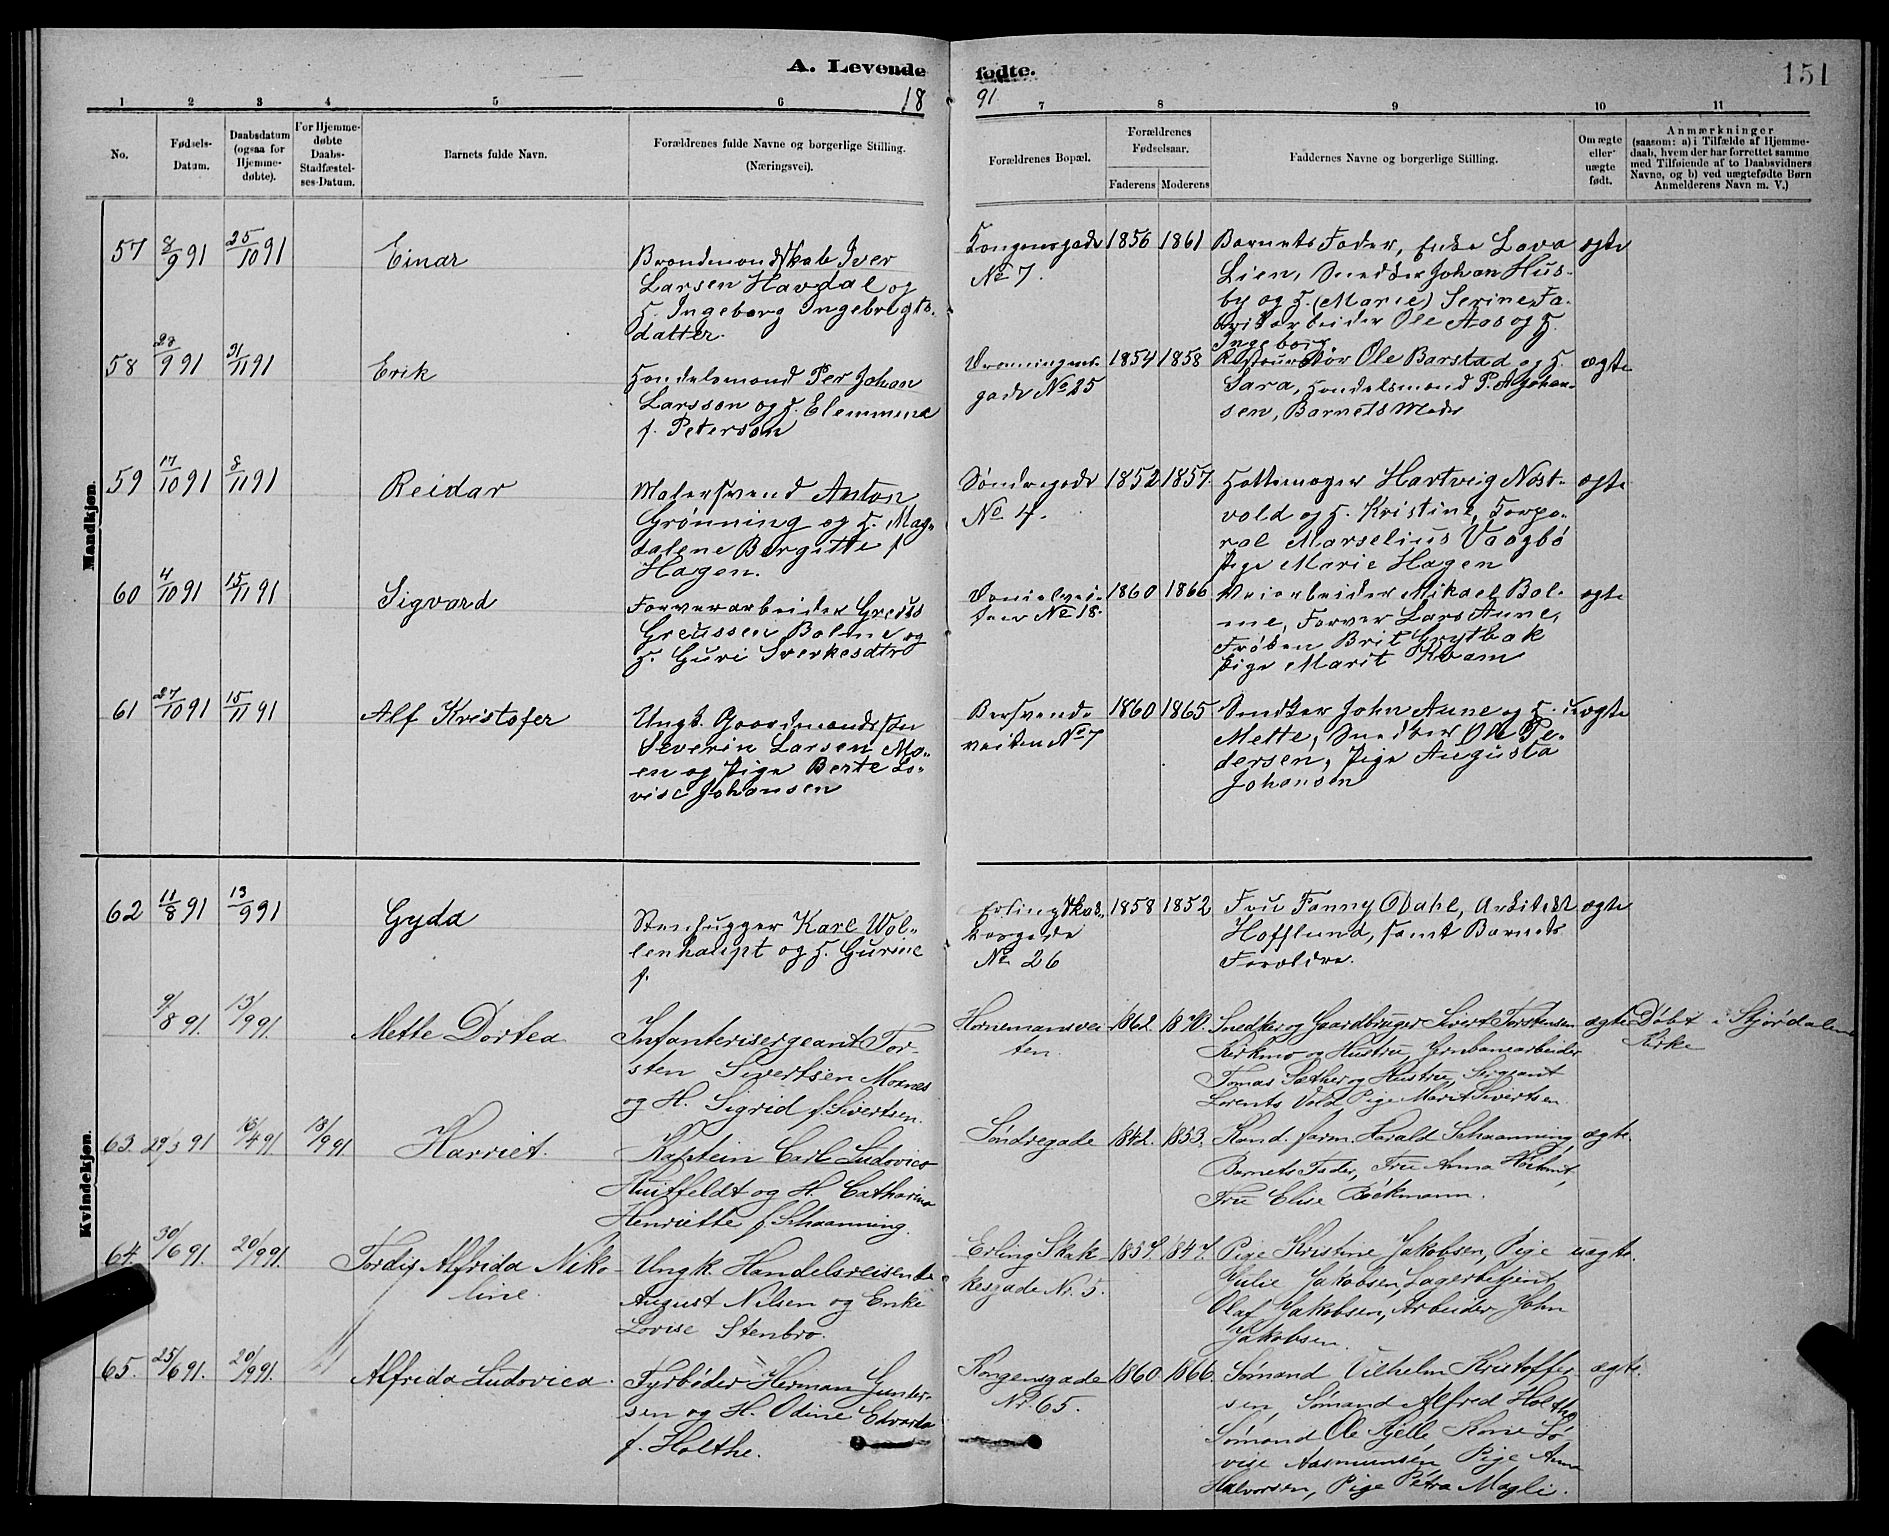 A. Levende fødte.
151
18 91
1 2 3 4 5 6 7 8 9 10 11
No.
Fødsels-
Datum.
Daabsdatum
(ogsaa for
Hjemme-
døbte).
For Hjemme-
døbte
Daabs-
Stadfæstel-
ses-Datum.
Barnets fulde Navn.
Forældrenes fulde Navne og borgerlige Stilling.
(Næringsvei).
Forældrenes Bopæl.
Forældrenes
Fødselsaar.
Faderens Moderens
Faddernes Navne og borgerlige Stilling.
Om ægte
eller
uægte
født.
Anmærkninger
(saasom: a) i Tilfælde af Hjemme-
daab, hvem der har forrettet samme
med Tilføiende af to Daabsvidners
Navne, og b) ved uægtefødte Børn
Anmelderens Navn m. V.)
Mandkjøn.
57 8/9 91 25/10 91 Einar
Brandmandskab Iver
Larsen Havdal og
H. Ingeborg Ingebrigts-
datter.
Kongensgade
No 7.
1856 1861
Barnets Fader, Enke Lava
Lien, Snedker Johan Hus-
by og H. (Marie) Serine, Fa-
brikarbeider Ole Aas og H.
Ingeborg
ægte
58 23/9 91 31/11 91 Erik
Handelsmand Per Johan
Larsson og H. Elemmina
f. Peterson
Dronningens-
gade No 25
1854 1858
Restauratør Ole Barstad og H.
Sara, Handelsmand P. A. Johan-
sen, Barnets Moder
ægte
59 17/10 91 8/11 91 Reidar
Malersvend Anton
Grønning og H. Mag-
dalene Bergitte f
Hagen.
Søndregade
No 4.
1852 1857
Hattemager Hartvig Nøst-
vold og H. Kristine, Korpo-
ral Marselius Vaagbø
Pige Marie Hagen
ægte
60 4/10 91 15/11 91 Sigvard
Farverarbeider Greius
Greiussen Bolme og
H. Guri Sverkesdtr
Danielsvei-
ten No 18.
1860 1866
Veiarbeider Mikael Bol-
me, Farver Lars Aune,
Frøken Brit Grytbak
Pige Marit Kvam
ægte
61 27/10 91 15/11 91 Alf Kristofer
Ungk. Gaardmandssøn
Severin Larsen Mo-
en og Pige Berte Lo-
vise Johansen
Bersvends-
veiten No 7
1860 1865
Snedker John Aune og H.
Mette, Snedker Ole Pe-
dersen, Pige Augusta
Johansen
uægte
Kvindekjøn.
62 11/8 91 13/9 91 Gyda
Stenhugger Karl Wol-
lenhaupt og H. Gurine
f.
Erling Skak-
kesgade
No 26
1858 1852
Fru Fanny Dahl, Arkitekt
Hofflund, samt Barnets
Forældre.
ægte
9/8 91. 13/9 91. Mette Dortea
Infanterisergeant Tor-
sten Sivertsen Moxnes
og H. Sigrid f. Sivertsen.
Hornemansvei
ten.
1862 1870.
Snedker og Gaardbruger Sivert Torstensen
Kirkmo og Hustru, Jernbanearbeider
Tomas Sæther og Hustru, Sergeant
Lorents Vold Pige Marit Sivertsen
ægte
Døbt i Stjørdalens
Kirke
63. 29/3 91 16/4 91 18/9 91 Harriet.
Kaptein Carl Ludovico
Huitfeldt og H. Catharina
Henriette f Schaanning.
Søndregade
1842. 1853.
Kand. farm. Harald Schaanning,
Barnets Fader, Fru Anna Huitfeldt,
Fru Elise Bøckmann.
ægte.
64. 30/6 91. 20/9 91. Tordis Alfrida Niko-
line.
Ungk. Handelsreisende
August Nilsen og Enke
Lovise Stenbro.
Erling Skak-
kesgade Nr. 5.
1857. 1847.
Pige Kristine Jakobsen, Pige
Julie Jakobsen, Lagerbetjent
Olaf Jakobsen, Arbeider John
Jakobsen.
uægte.
65. 25/6 91. 20/9 91. Alfrida Ludovica.
Fyrbøder Herman Gunder-
sen og H. Odine Edvarda
f. Holthe.
Kongensgade
Nr. 65.
1860. 1866.
Sømand Vilhelm Kristoffer-
sen, Sømand Alfred Holthe
Sømand Ole Fjelle Kone Lo-
vise Aasmunsen Pige Anna
Halvorsen, Pige Petra Magli.
ægte.